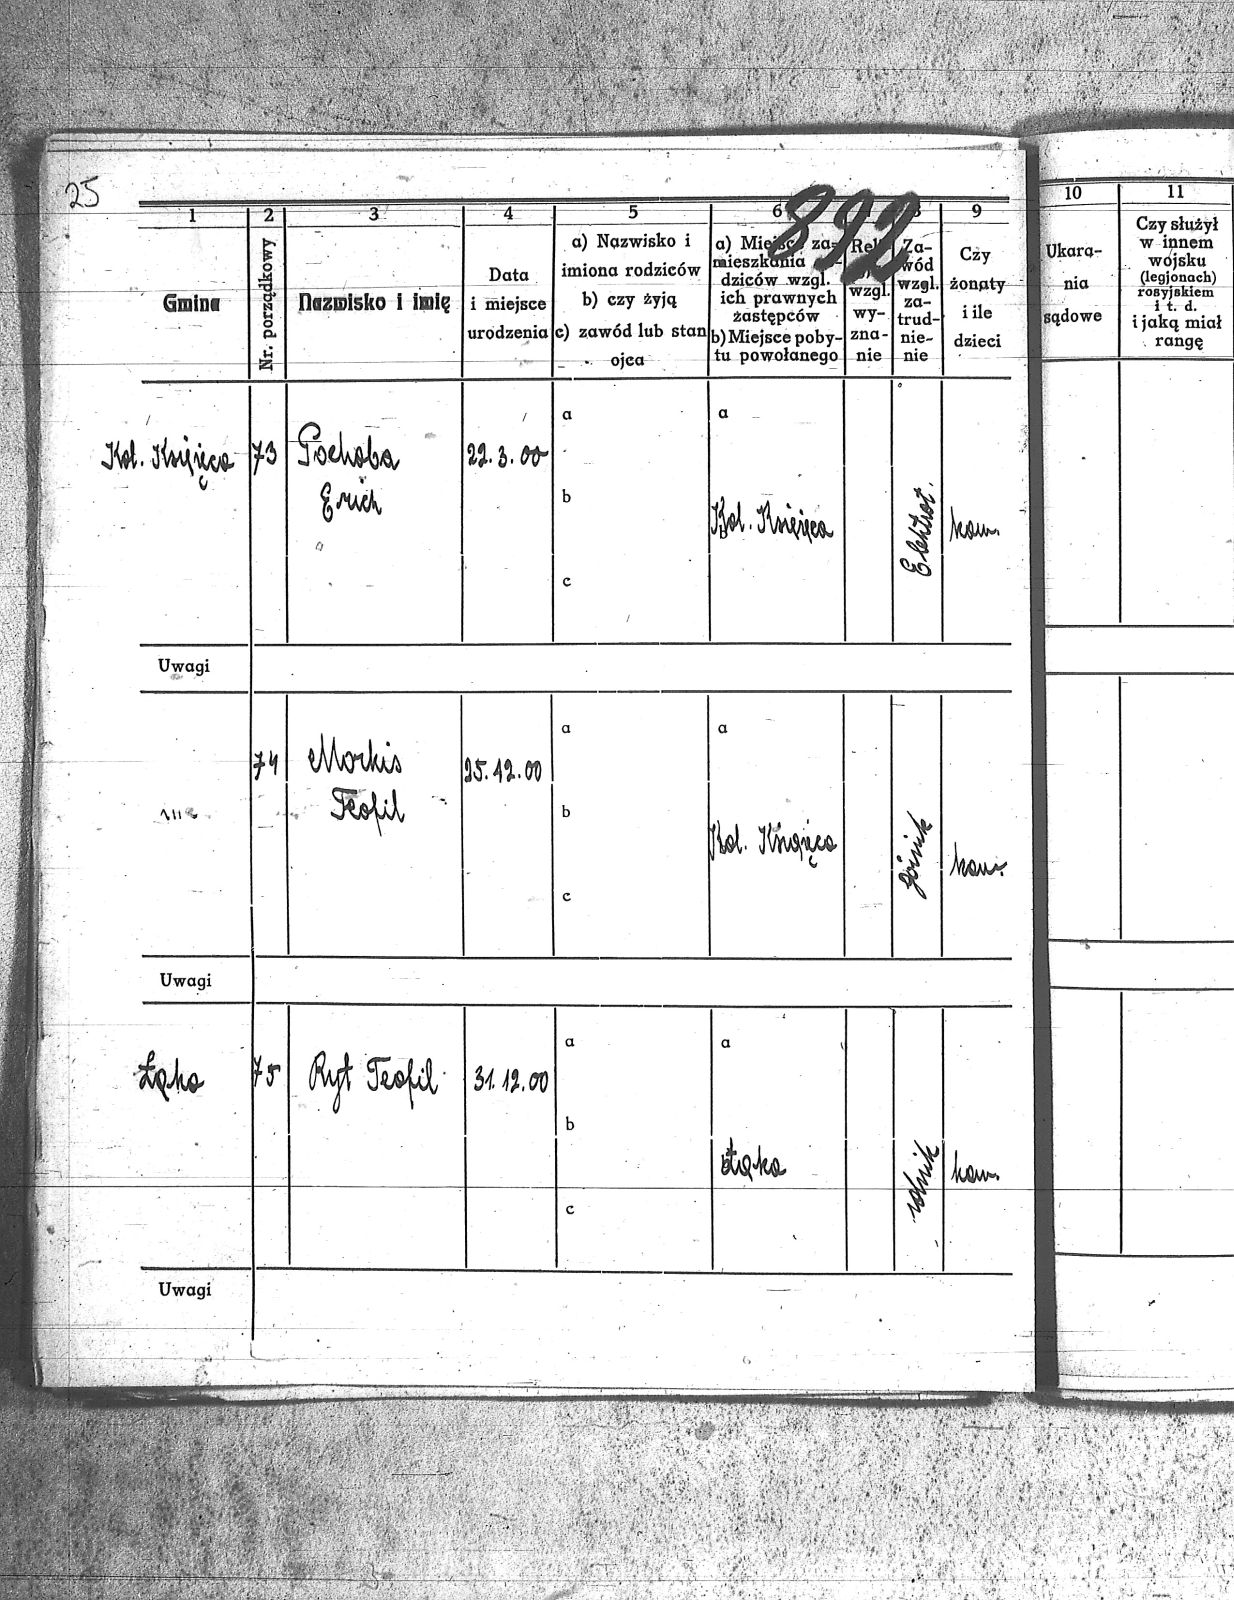 25
892
1 2 3 4 5 6 8 9 10 11
Gmina
Nr. porządkowy
Nazwisko i imię
Data
i miejsce
urodzenia
a) Nazwisko i
imiona rodziców
b) czy żyją
c) zawód lub stan
ojca
a) Miejsce za-
mieszkania
dziców wzgl.
ich prawnych
zastępców
b) Miejsce poby-
tu powołanego
Rel
wzgl.
wy-
zna-
nie
Za-
wód
wzgl.
za-
trud-
nie-
nie
Czy
żonaty
i ile
dzieci
Ukara-
nia
sądowe
Czy służył
w innem
wojsku
(legjonach)
rosyjskiem
i t. d.
i jaką miał
rangę
Kol. Księżęca 73 Pochoba 22.3.00 a a
Erich b Kol. Księżęca Elektrot. kaw.
c
Uwagi
74 Morkis 25.12.00 a a
Teofil b Kol. Książęca górnik kaw.
c
Uwagi
Łąka 75 Ryt Teofil 31.12.00 a a
b Łąka rolnik kaw.
c
Uwagi